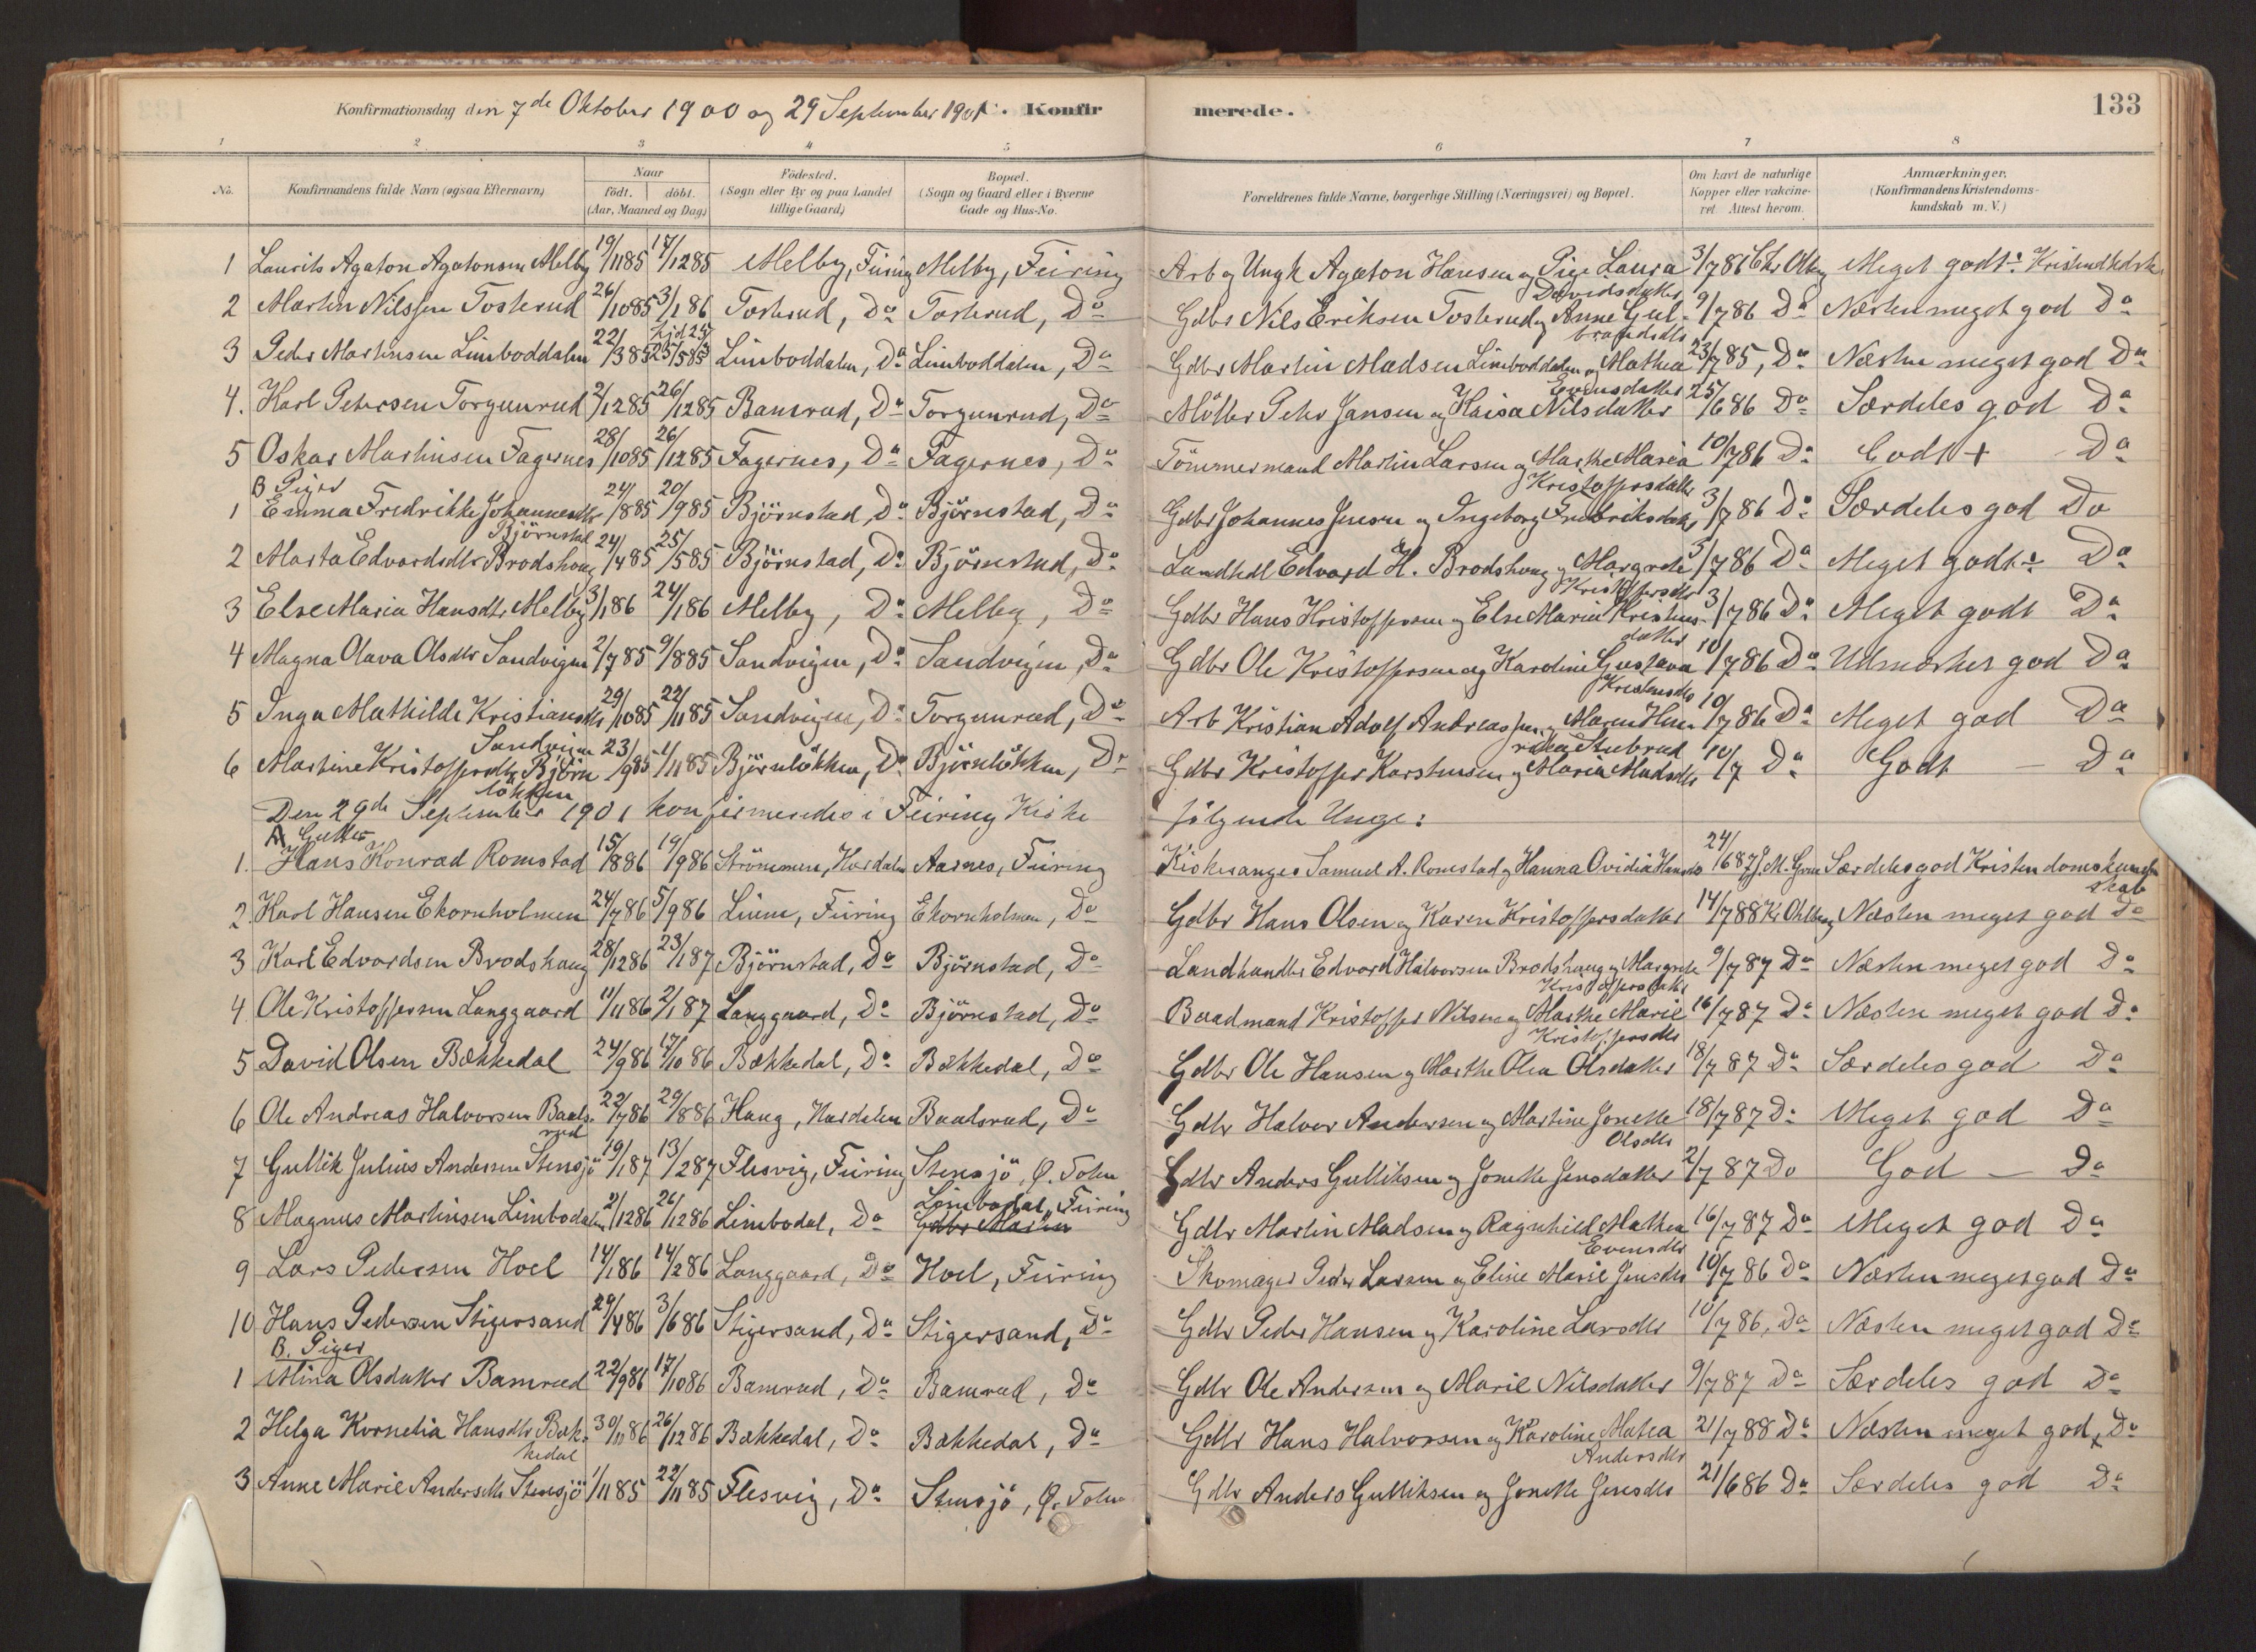 Konfirmationsdag den 7de Oktober 1900 og 29 September 1901 C. Konfirmerede. 133
1 2 3 4 5 6 7 8
No. Konfirmandens fulde Navn (ogsaa Efternavn) Naar födt. döbt. (Aar, Maaned og Dag) Födested. (Sogn eller By og paa Landet tillige Gaard) Bopæl. (Sogn og Gaard eller i Byerne Gade og Hus-No. Forældrenes fulde Navne, borgerlige Stilling (Næringsvei) og Bopæl. Om havt de naturlige Kopper eller vakcineret. Attest herom. Anmærkninger. (Konfirmandens Kristendomskundskab m. V.)
1 Laurits Agaton Agatonsen Melby 19/1185 17/1285 Melby, Feiring Melby, Feiring Arb og Ungk Agaton Hansen og Pige Laura Davidsdatter 3/786 Chr Olberg Meget godt÷
2 Martin Nilssen Tosterud 26/1085 3/186 Tosterud, Do Tosterud, Do Gdbr Nils Eriksen Tosterud og Anne Gulbrandsdtr 9/786 Do Næsten meget god Do
3 Peder Martinsen Limboddalen 22/385 25/585 Limboddalen, Do Limboddalen, Do Gdbr Martin Madsen Limboddalen og Mathea Evensdatter 23/785, Do Næsten meget god Do
4. Karl Petersen Torgunrud 2/1285 26/1285 Bamrud, Do Torgunrud, Do Möller Peter Jansen og Kaisa Nilsdatter 25/686 Do Særdeles god Do
5 Oskar Martinsen Fagernes 28/1085 26/1285 Fagernes, Do Fagernes, Do Tömmermand Martin Larsen og Marthe Maria Kristoffersdatter 10/786 Do Godt + Do
B Piger
1 Emma Fredrikke Johannesdtr Björnstad 24/885 20/985 Björnstad, Do Björnstad, Do Gdbr Johannes Jensen og Ingeborg Fredriksdatr 3/786 Do Særdeles god Do
2 Marta Edvardsdtr Brodshaug 24/485 25/585 Björnstad, Do Björnstad, Do Landhdl Edvard H. Brodshaug og Margrete Kristoffersdtr 3/786 Do Meget godt÷ Do
3 Else Maria Hansdtr Melby 3/186 24/186 Melby, Do Melby, Do Gdbr Hans Kristoffersen og Else Maria Kristensdatter 3/786 Do Meget godt Do
4 Magna Olava Olsdtr Sandvigen 2/785 9/885 Sandvigen, Do Sandvigen, Do Gdbr Ole Kristoffersen og Karoline Gustava Kristensdtr 10/786 Do Udmærket god Do
5 Inga Mathilde Kristiansdtr Sandvigen 29/1085 22/1185 Sandvigen, Do Torgunrud, Do Arb Kristian Adolf Andreassen og Maren Henrikka Stubrud 10/786 Do Meget god Do
6 Martine Kristoffersdtr Björnlökken 23/985 1/1185 Björnlökken, Do Björnlökken, Do Gdbr Kristoffer Karstensen og Maria Madsdtr 10/7 Do Godt — Do
Den 29de September 1901 konfirmeredes i Feiring Kirke følgende Unge:
A Gutter
1. Hans Konrad Romstad 15/886 19/986 Strömmen, Hurdalen Aasnes, Feiring Kirkesanger Samuel A. Romstad og Hanna Ovidia Hansdtr 24/687 Særdeles god Kristendomskundskab
2. Karl Hansen Ekornholmen 24/786 5/986 Linne, Feiring Ekornholmen, Do Gdbr Hans Olsen og Karen Kristoffersdatter 14/788 Næsten meget god Do
3 Karl Edvardsen Brodshaug 28/1286 23/187 Björnstad, Do Björnstad, Do Landhandler Edvard Halvorsen Brodshaug og Margrete Kristoffersdatr 9/787 Do Næsten meget god Do
4 Ole Kristoffersen Langgaard 11/1186 2/187 Langgaard, Do Björnstad, Do Baadmand Kristoffer Nilsen og Marthe Marie Kristoffersdtr 16/787 Do Næsten meget god Do
5 David Olsen Bækkedal 24/986 17/1086 Bækkedal, Do Bækkedal, Do Gdbr Ole Hansen og Marthe Olea Olsdatter 18/787 Do Særdeles god Do
6 Ole Andreas Halvorsen Baalsrud 22/786 29/886 Haug, Hurdalen Baalsrud, Do Gdbr Halvor Andersen og Martine Jonette Olsdtr 18/787 Do Meget god Do
7 Gullik Julius Andersen Stensjö 19/187 13/287 Flesvig, Feiring Stensjö, Ö. Toten Gdbr Anders Gulliksen og Jonette Jensdatter 2/787 Do God — Do
8 Magnus Martinsen Limbodalen 2/1286 26/1286 Limbodal, Do Limbodal, Feiring Gdbr Martin Gdbr Martin Madsen og Ragnhild Mathea Evensdtr 16/787 Do Meget god Do
9 Lars Pedersen Hoel 14/186 14/286 Langgaard, Do Hoel, Feiring Skomager Peder Larsen og Eline Marie Jensdtr 10/786 Do Næsten meget god Do
10 Hans Pedersen Stigersand 29/486 3/686 Stigersand, Do Stigersand, Do Gdbr Peder Hansen og Karoline Larsdtr 10/786, Do Næsten meget god Do
B. Piger
1 Mina Olsdatter Bamrud 22/986 17/1086 Bamrud, Do Bamrud, Do Gdbr Ole Andersen og Marie Nilsdatter 9/787 Do Særdeles god Do
2 Helga Kornelia Hansdtr Bækkedal 30/1186 26/1286 Bækkedal, Do Bækkedal, Do Gdbr Hans Halvorsen og Karoline Matea Andersdtr 21/788 Do Næsten meget god, Do
3 Anne Marie Andersdtr Stensjö 1/1185 22/1185 Flesvig, Do Stensjö, Ö. Toten Gdbr Anders Gulliksen og Jonette Jensdtr 21/686 Do Særdeles god Do